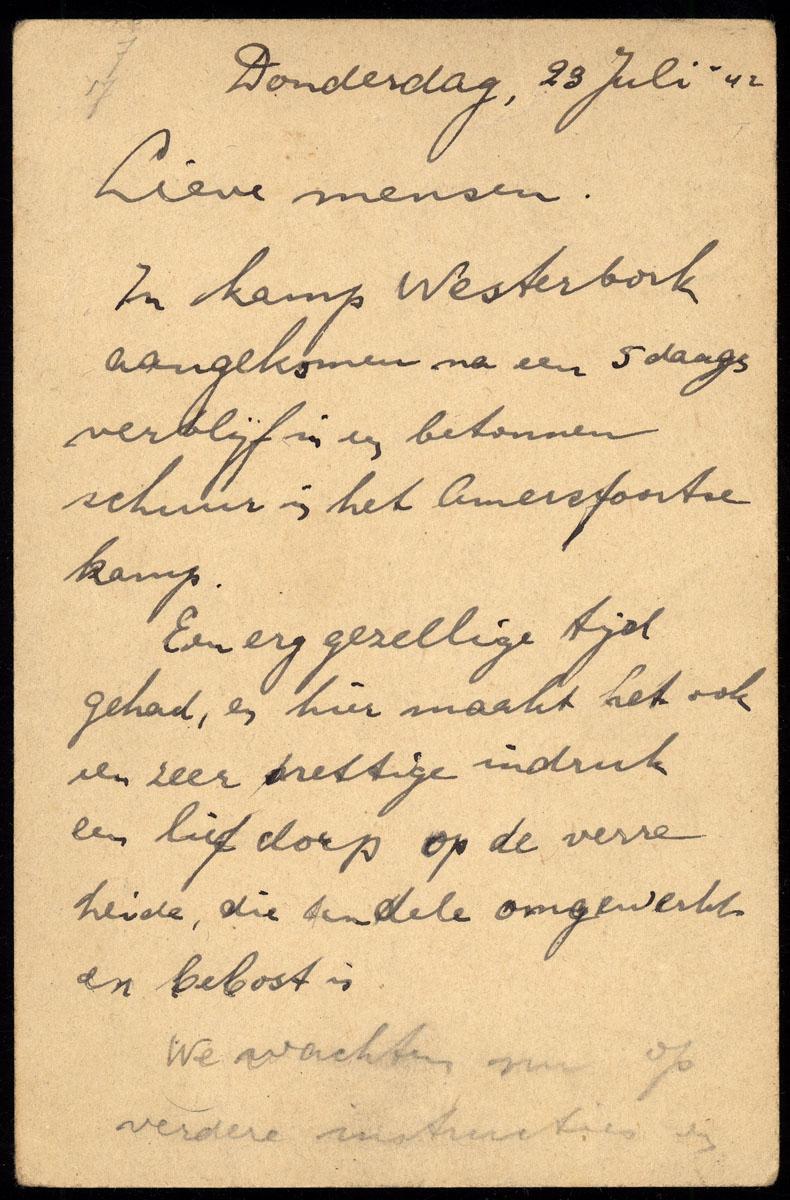 Donderdag, 23 Juli '42
Lieve mensen.
In kamp Westerbork
aangekomen na een 5 daags
verblijf in een betonnen
schuur in het Amersfoortse
kamp.
Een erg gezellige tijd
gehad, en hier maakt het ook
een zeer prettige indruk
een lief dorp op de verre
heide, die ten dele omgewerkt
en bebost is
We wachten nu op
verdere instructies en